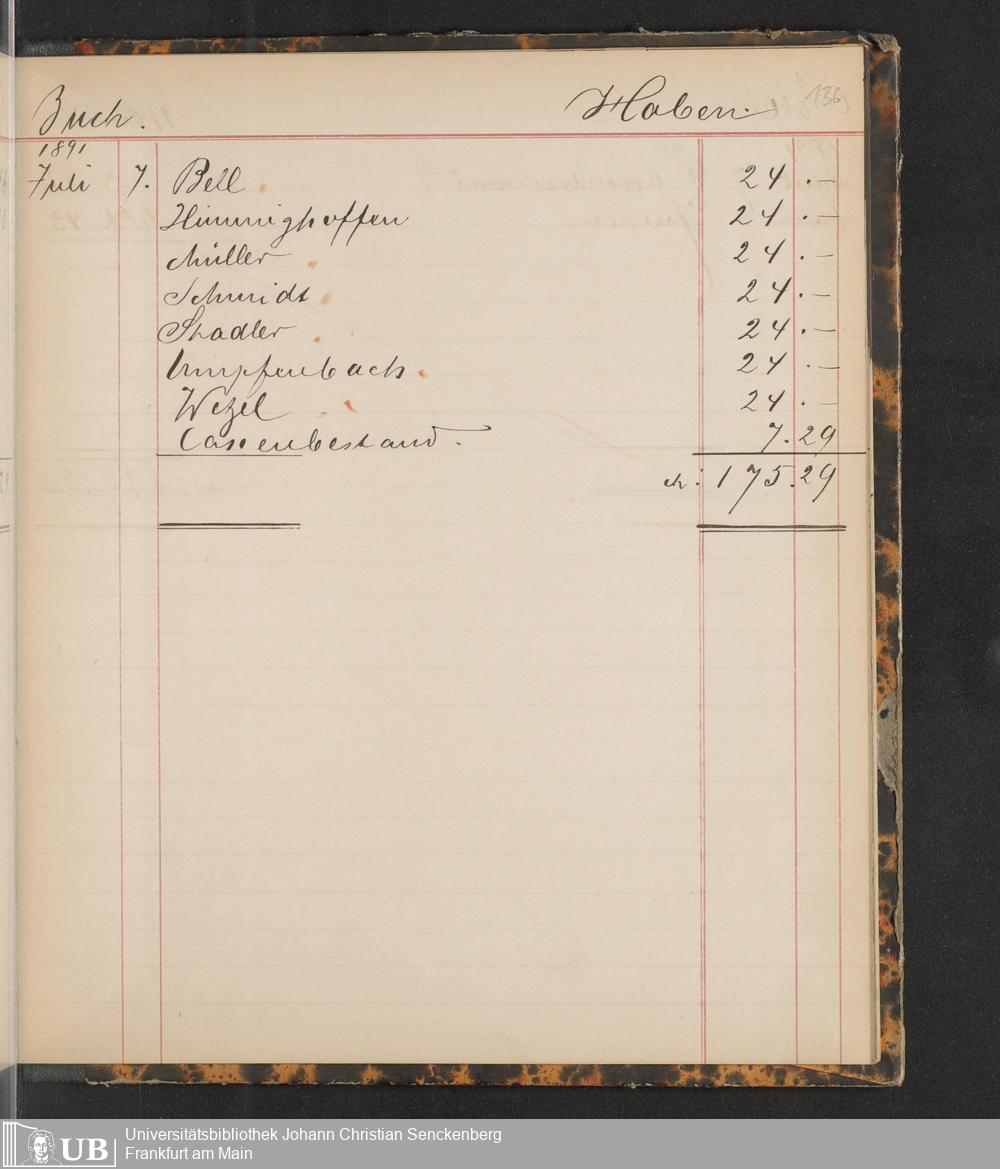 Buch. Haben. 136
1891
Juli 7. Bell 24.—
Himmighoffen 24.—
Müller 24.—
Schmidt 24.—
Stadler 24.—
Umpfenbach 24.—
Wetzel 24.—
Cassenbestand. 7.29
M: 175.29
UB
Universitätsbibliothek Johann Christian Senckenberg
Frankfurt am Main